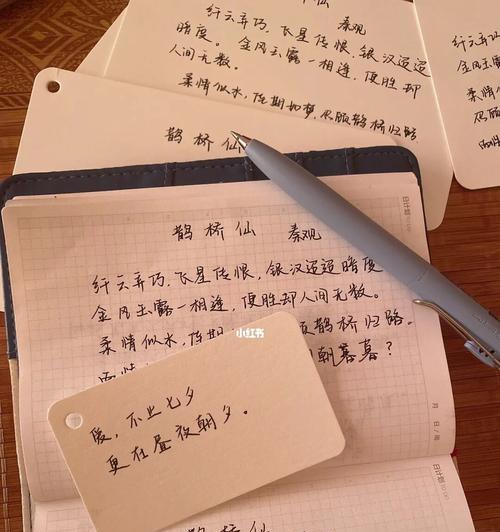 仙
秦观
纤云弄巧，飞星传恨，银汉迢迢
暗度。金风玉露一相逢，便胜却
人间无数。
柔情似水，佳期如梦，忍顾鹊桥归路
鹊桥仙
纤云弄
金风玉
柔情
忍顾
鹊桥仙 秦观
日计划
纤云弄巧，飞星传恨，银汉迢迢暗度
金风玉露一相逢，便胜却人间无数。
柔情似水，佳期 顾鹊桥归路。
两情 朝暮暮？
小红书
爱，不止七夕
更在昼夜朝夕。
月 日/周
日计划
鹊桥仙